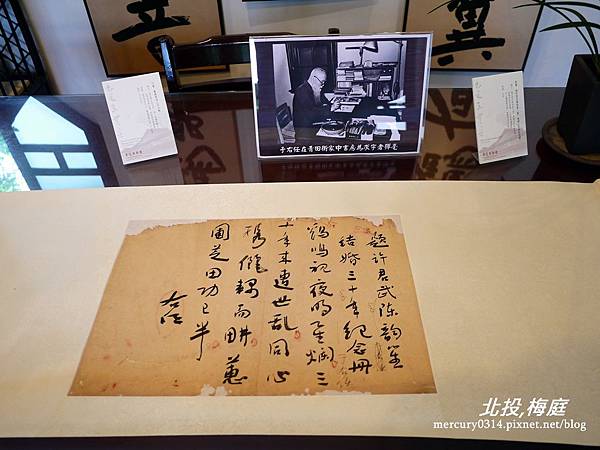 于右任在青田街家中書房為求字者揮毫
題許君武陳韵笙
結婚三十年紀念冊
鷄鳴視夜明星爛三
十年來遭世亂同心
儷耦而耕蕙
圃芝田功已半
右任
北投,梅庭
mercury0314.pixnet.net/blog